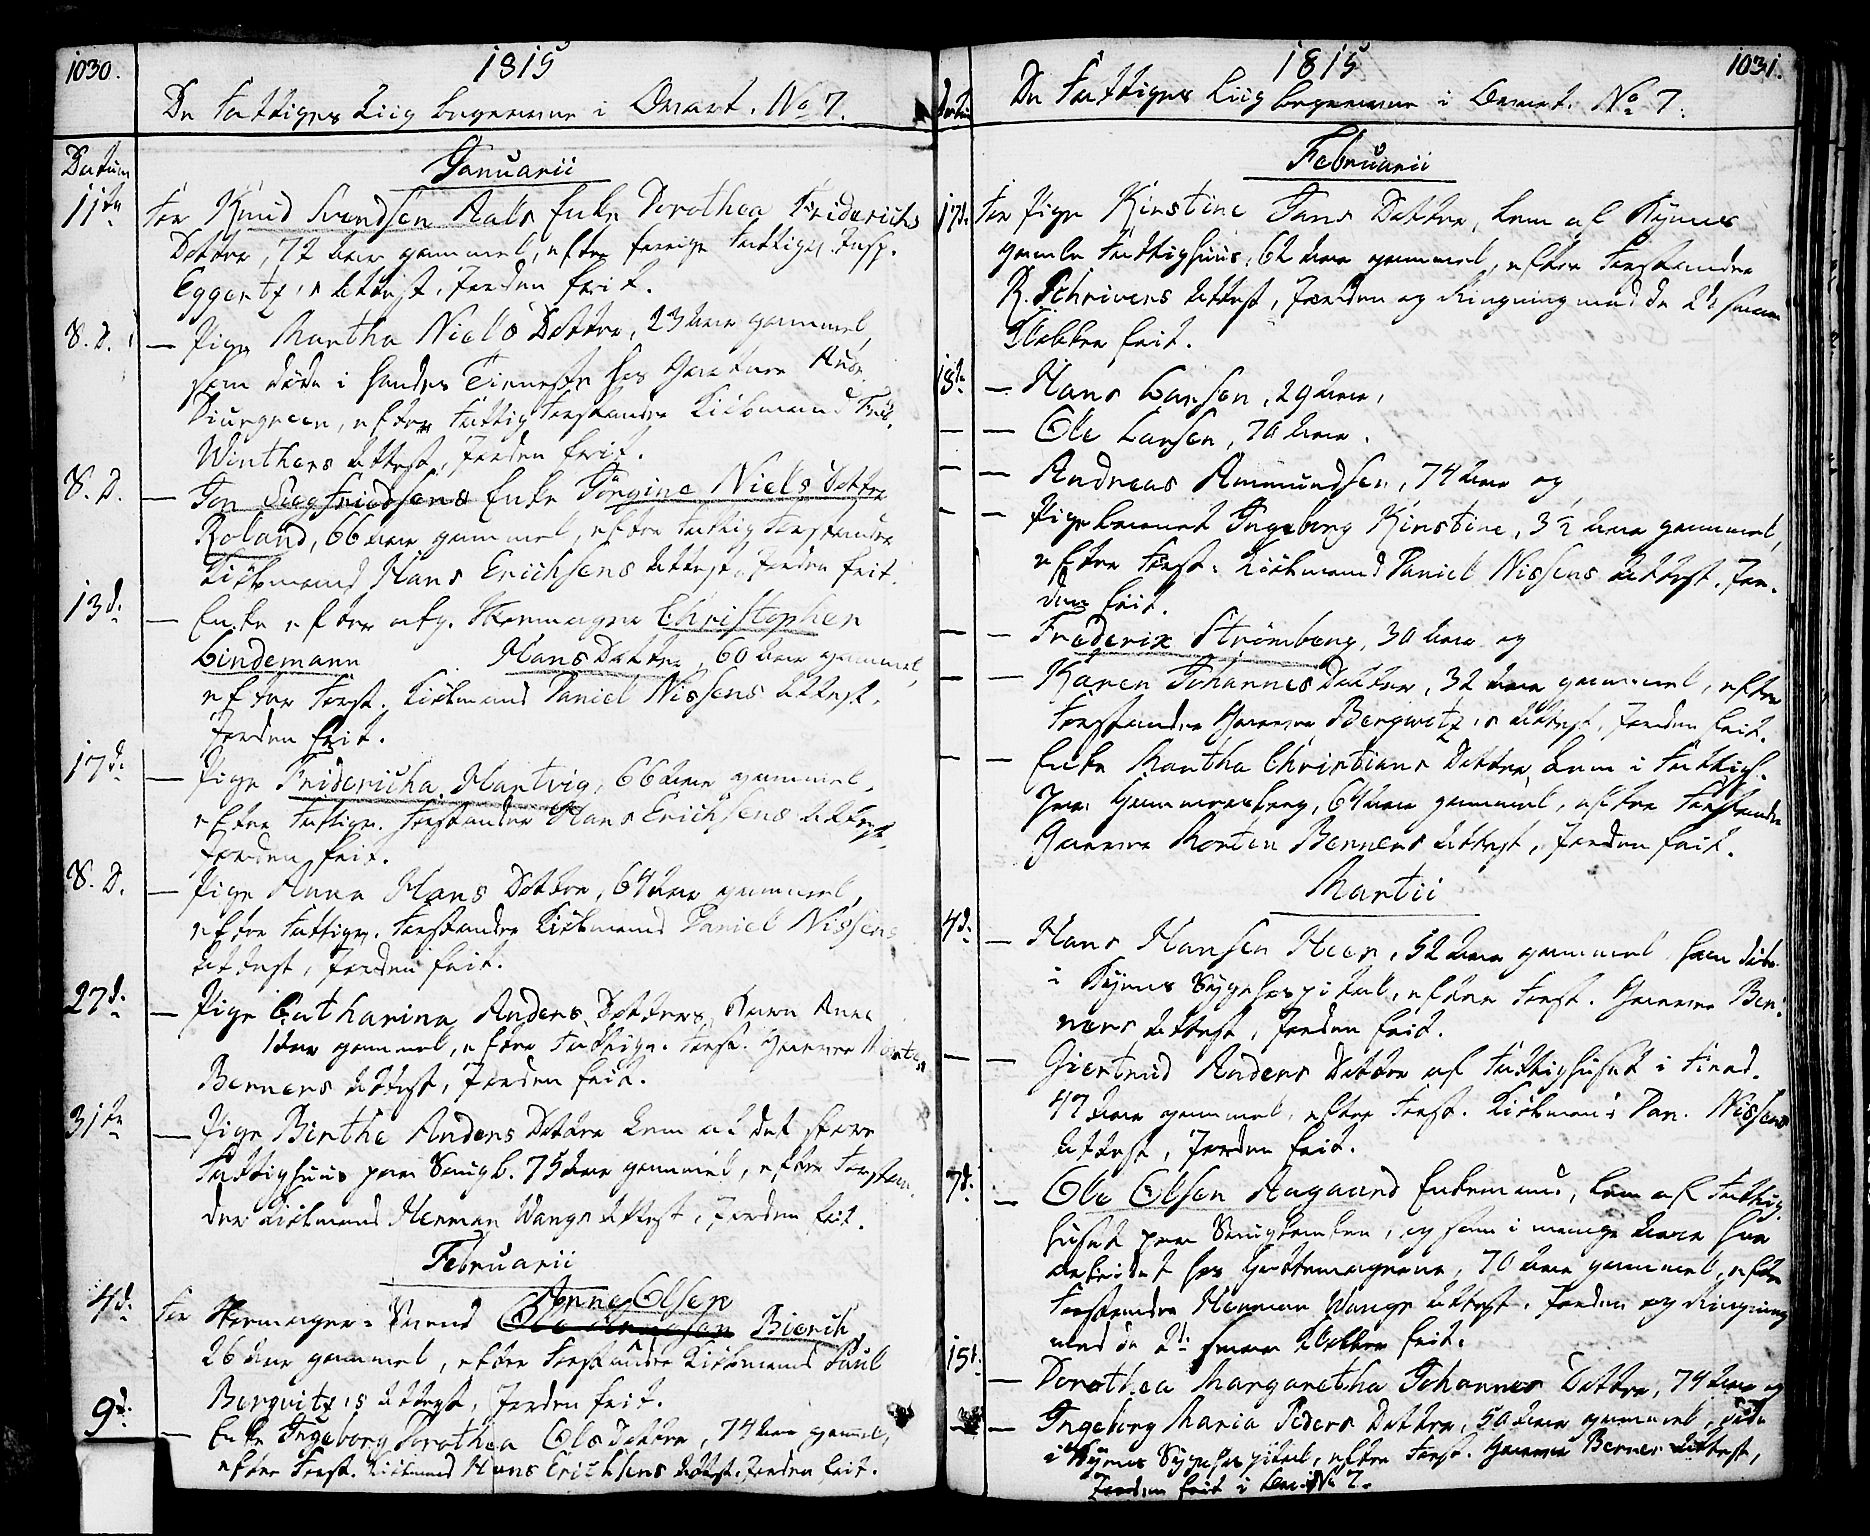 1030.
1815
De Fattiges Liig begravne i Qvart. No 7.
Datum
Januarii
11te For Knud Svendsen Aals Enke Dorothea Friderichs
Datter, 72 Aar gammel, efter forrige Fattiges Insp.
Eggertz's Attest, Jorden frit.
S. D. — Pige Martha Niels Datter, 23 Aar gammel,
som døde i hendes Tienneste hos Gartner And.
Diurgreen, efter Fattig Forstander Kiøbmand Frid.
Winthers Attest, Jorden frit.
S. D. — Jon Siegfriedsens Enke Jørgine Niels Datter
Roland, 66 Aar gammel, efter Fattig Forstander
Kiøbmand Hans Erichsens Attest, Jorden frit.
13d. — Enke efter afg. Skomager Christopher
Lindemann Hans Datter, 60 Aar gammel,
efter Forst. Kiøbmand Daniel Nissens Attest,
Jorden frit.
17d. — Pige Fridericha Hartvig, 66 Aar gammel,
efter Fattigs. Forstander Hans Erichsens Attest,
Jorden frit.
S. D. — Pige Anna Hans Datter, 64 Aar gammel,
efter Fattigs. Forstander Kiøbmand Daniel Nissens
Attest, Jorden frit.
27d. — Pige Catharina Anders Datters Barn Anne
1 Aar gammel, efter Fattigs. Forst. Garver Morten
Berners Attest, Jorden frit.
31te — Pige Birthe Anders Datter Lem af det store
Fattighuus paa Saugb. 75 Aar gammel, efter Forstan-
der Kiøbmand Herman Wangs Attest, Jorden frit.
Februarii
Arne Olsen
4d. For Skomager-Svend Bierch,
26 Aar gammel, efter Forstander Kiøbmand Paul
Bergvitz's Attest, Jorden frit.
9d. — Enke Ingeborg Dorothea Ols Datter, 74 Aar gammel,
efter Forst. Kiøbmand Hans Erichsens Attest, Jorden frit.
1031.
1815
De Fattiges Liig begravne i Qvart. No 7.
Datum
Februarii
17d. For Pige Kirstine Jans Datter, Lem af Byens
gamle Fattighuus, 62 Aar gammel, efter Forstander
R. Schrivers Attest, Jorden og Ringning med de 2de smaae
Klokker frit.
18de — Hans Larsen, 29 Aar,
— — Ole Larsen, 70 Aar.
— — Andreas Ammundsen, 74 Aar og
— — Pigebarnet Ingeborg Kirstine, 3½ Aar gammel,
efter Forst. Kiøbmand Daniel Nissens Attest, Jor-
den frit.
— — Frederix Strømberg, 30 Aar og
— — Karen Johannes Datter, 32 Aar gammel, efter
Forstander Garver Bergwitz's Attest, Jorden frit.
— — Enke Martha Christians Datter Lem i Fattigh.
paa Hammersborg, 64 Aar gammel, efter Forstander
Garver Morten Berners Attest, Jorden frit.
Martii
4d. — Hans Hansen Heer, 52 Aar gammel som døde
i Byens Sygehospital, efter Forst. Garver Ber-
ners Attest, Jorden frit.
— — Giertrud Anders Datter af Fattighuset i
47 Aar gammel, efter Forst. Kiøbmand Dan. Nissens
Attest, Jorden frit.
7d. — Ole Olsen Aagaard Enkemand, Lem af Fattig-
huset paa Saugbanken, og som i mange Aar har
arbeidet hos Pottemagerne, 70 Aar gammel, efter
Forstander Herman Wangs Attest, Jorden og Ringning
med de 2de smaae Klokker frit.
15d. — Dorothea Margaretha Johannes Datter, 74 Aar og
— — Ingeborg Maria Peders Datter, 50 Aar gammel, døde
i Byens Sygehospital, efter Forst. Garver Berners Attest,
Jorden frit i No 7.